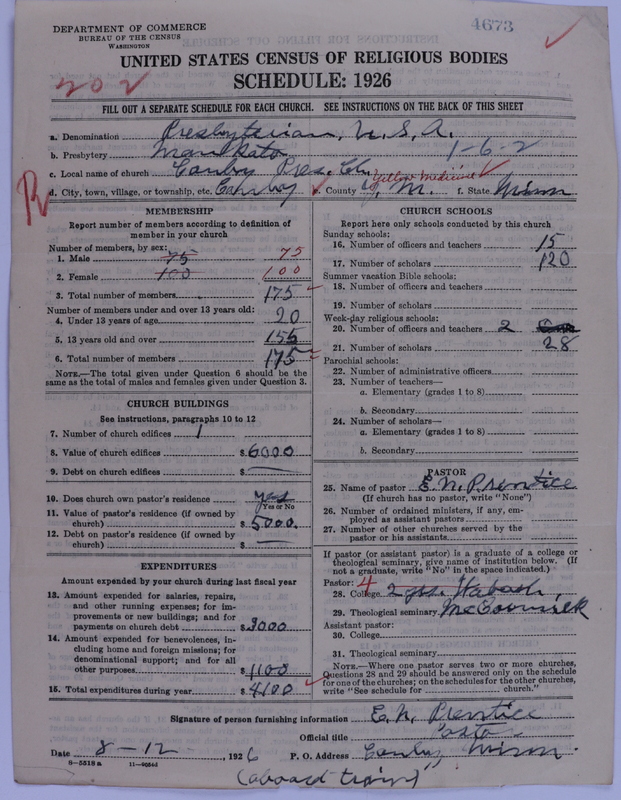 DEPARTMENT OF COMMERCE
BUREAU OF THE CENSUS
WASHINGTON
4673
UNITED STATES CENSUS OF RELIGIOUS BODIES
SCHEDULE: 1926
202
FILL OUT A SEPARATE SCHEDULE FOR EACH CHURCH. SEE INSTRUCTIONS ON THE BACK OF THIS SHEET
a. Denomination Presbyterian, U.S.A.
b. Presbytery Mankato 1-6-2
c. Local name of church Canby Pres. Ch. Yellow Medicine
d. City, town, village, or township, etc. Canby e. County Y. M. f. State Minn
R
MEMBERSHIP
Report number of members according to definition of
member in your church
Number of members, by sex:
1. Male 75 75
2. Female 100 100
3. Total number of members 175
Number of members under and over 13 years old:
4. Under 13 years of age 20
5. 13 years old and over 155
6. Total number of members 175
NOTE.—The total given under Question 6 should be the
same as the total of males and females given under Question 3.
CHURCH BUILDINGS
See instructions, paragraphs 10 to 12
7. Number of church edifices 1
8. Value of church edifices $6000
9. Debt on church edifices $
10. Does church own pastor's residence yes
Yes or No
11. Value of pastor's residence (if owned by
church) $5000.
12. Debt on pastor's residence (if owned by
church) $
EXPENDITURES
Amount expended by your church during last fiscal year
13. Amount expended for salaries, repairs,
and other running expenses; for im-
provements or new buildings; and for
payments on church debt $3000
14. Amount expended for benevolences, in-
cluding home and foreign missions; for
denominational support; and for all
other purposes $1100
15. Total expenditures during year $4100
CHURCH SCHOOLS
Report here only schools conducted by this church
Sunday schools:
16. Number of officers and teachers 15
17. Number of scholars 120
Summer vacation Bible schools:
18. Number of officers and teachers
19. Number of scholars
Week-day religious schools:
20. Number of officers and teachers 2
21. Number of scholars 28
Parochial schools:
22. Number of administrative officers
23. Number of teachers—
a. Elementary (grades 1 to 8)
b. Secondary
24. Number of scholars—
a. Elementary (grades 1 to 8)
b. Secondary
PASTOR
25. Name of pastor E. N. Prentice
(If church has no pastor, write "None")
26. Number of ordained ministers, if any, em-
ployed as assistant pastors
27. Number of other churches served by the
pastor or his assistants
If pastor (or assistant pastor) is a graduate of a college or
theological seminary, give name of institution below. (If
not a graduate, write "No" in the space indicated.)
Pastor: 4
28. College Wabash,
29. Theological seminary McCormick
Assistant pastor:
30. College
31. Theological seminary
NOTE.—Where one pastor serves two or more churches,
Questions 28 and 29 should be answered only on the schedule
for one of the churches; on the schedules for the other churches,
write "See schedule for church."
Signature of person furnishing information E. N. Prentice
Official title Pastor
Date 8-12, 1926 P. O. Address Canby Minn.
8-5518a 11-9054d
(aboard train)